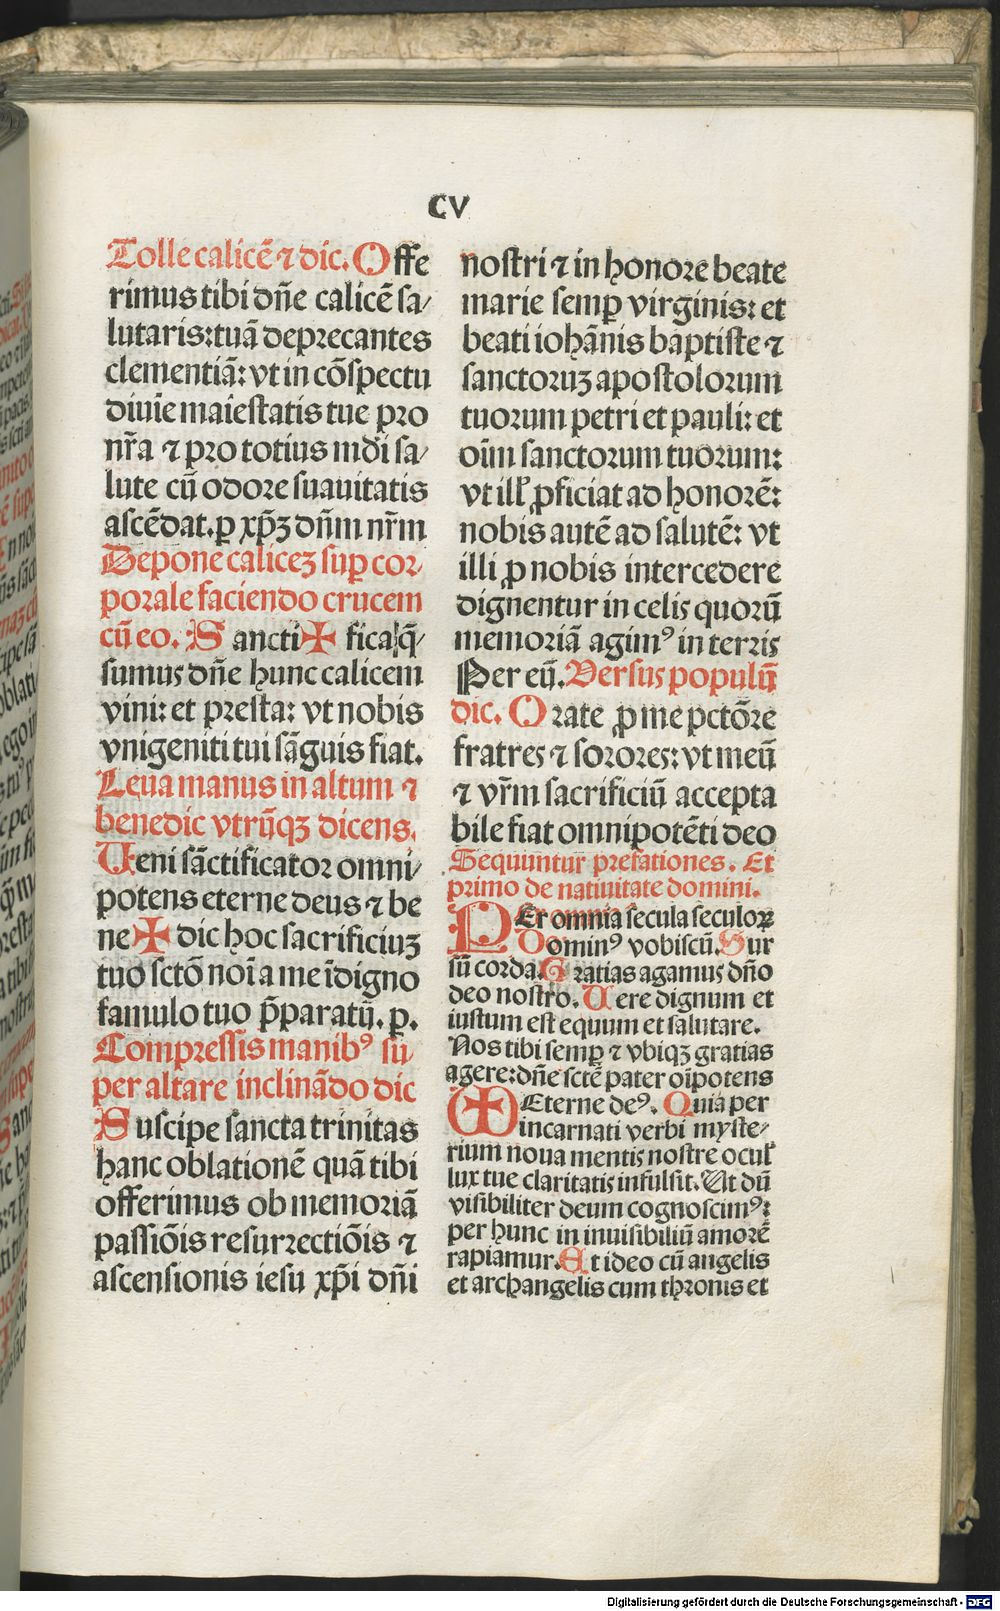 CV
Tolle calicē ⁊ dic. Offe
rimus tibi dn̄e calicē sa/
lutaris: tuā deprecantes
clementiā: vt in cōspectu
diuīe maiestatis tue pro
nr̄a ⁊ pro totius mūdi sa/
lute cū odore suauitatis
ascēdat. ꝑ xp̄ꝫ dn̄m nr̄m
Depone caliceꝫ suꝑ cor/
porale faciendo crucem
cū eo. Sancti✠fica q̄/
sumus dn̄e hunc calicem
vini: et presta: vt nobis
vnigeniti tui sāguis fiat.
Leua manus in altum ⁊
benedic vtrūqꝫ dicens.
Ueni sāctificator omni/
potens eterne deus ⁊ be
ne✠dic hoc sacrificiuꝫ
tuo sctō noī a me īdigno
famulo tuo p̄paratū. ꝑ.
Compressis manibꝰ su/
per altare inclināndo dic
Suscipe sancta trinitas
hanc oblationē quā tibi
offerimus ob memoriā
passiōis resurrectiōis ⁊
ascensionis iesu xp̄i dn̄i
nostri ⁊ in honore beate
marie semꝑ virginis: et
beati iohānis baptiste ⁊
sanctoruꝫ apostolorum
tuorum petri et pauli: et
oīm sanctorum tuorum:
vt ill̓ ꝓficiat ad honorē:
nobis autē ad salutē: vt
illi ꝓ nobis intercedere
dignentur in celis quorū
memoriā agimꝰ in terris
Per eū. Versus populū
dic. Orate ꝓ me pctōre
fratres ⁊ sorores: vt meū
⁊ vr̄m sacrificiū accepta
bile fiat omnipotēti deo
Sequuntur prefationes. Et
primo de natiuitate domini.
PEr omnia secula seculoꝝ
Dominꝰ vobiscū. Sur
sū corda. Gratias agamus dn̄o
deo nostro. Uere dignum et
iustum est equum et salutare.
Nos tibi semꝑ ⁊ vbiqꝫ gratias
agere: dn̄e sctē pater oīpotens
Eterne deꝰ. Quia per
incarnati verbi myste/
rium noua mentis nostre ocul̓
lux tue claritatis infulsit. Ut dū
visibiliter deum cognoscimꝰ:
per hunc in inuisibiliū amorē
rapiamur. Et ideo cū angelis
et archangelis cum thronis et
Digitalisierung gefördert durch die Deutsche Forschungsgemeinschaft - DFG